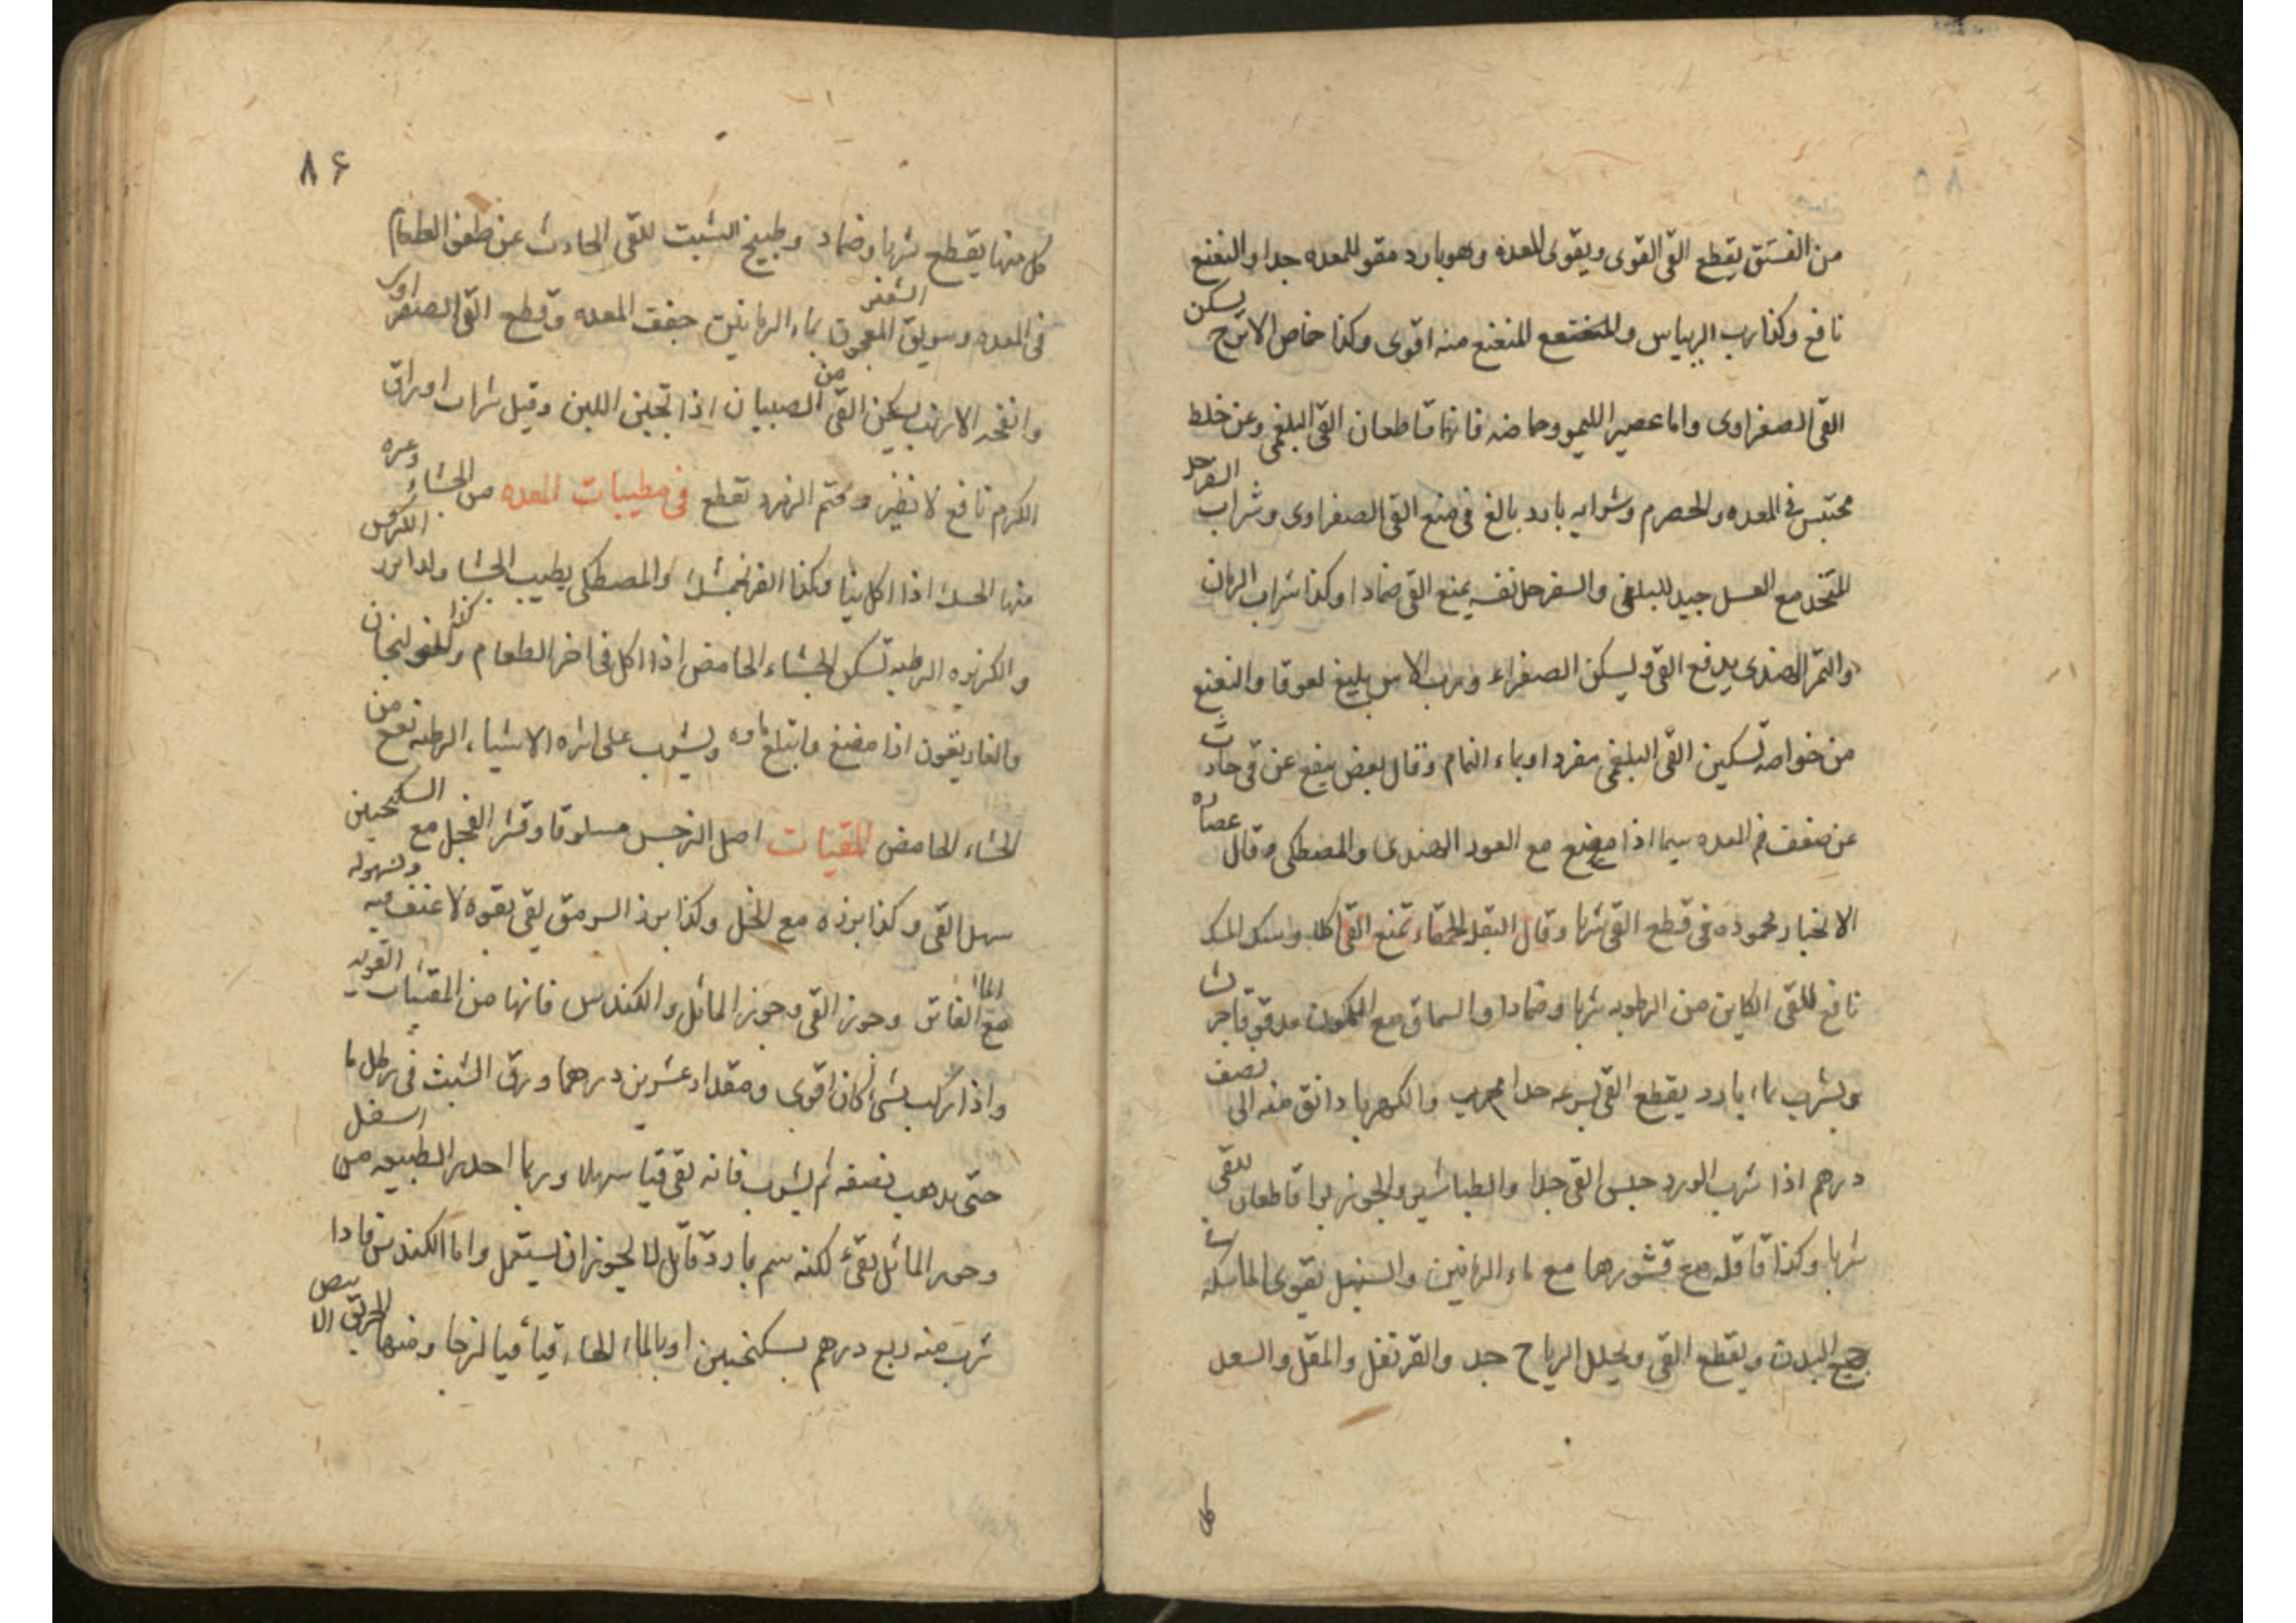 من الفستق يقطع القى القوى ويقوى المعده وهو بارد مقو للمعده جدا والنعنع
نافع وكذا رب الريباس والمنعنع منه اقوى وكذا حماض الاترج يسكن
القى الصفراوى واما عصير الليمو وحماضه فانهما قاطعان القى البلغمى وعن خلط
محتبس فى المعده والحصرم وشرابه بارد بالغ فى منع القى الصفراوى وشراب السفرجل
المتخد مع العسل جيد للبلغمى والسفرجل نفسه يمنع القى ضمادا وكذا شراب الرمان
والتمر الهندى يدفع القى ويسكن الصفراء ورب الاس بليغ لعوقا والنعنع
من خواصه تسكين القى البلغمى مفردا وبماء النمام وقال بعض ينفع عن قى حادث
عن ضعف فم المعده سيما اذا مضغ مع العود الهندى والمصطكى وقال عصاره
الانجبار محموده فى قطع القى شربا وقال البقله الحمقاء تمنع القى اكلا وسك المسك
نافع للقى الكاين من الرطوبه شربا وضمادا والسماق مع الكمون مدقوقا جريشا
ويشرب بماء بارد يقطع القى بسرعه جدا مجرب والكهربا دانق منه الى نصف
درهم اذا شرب الورد حبس القى جدا والطباشير والجوز بوا قاطعان للقى
شربا وكذا قاقله مع قشورها مع ماء الرمانين والسنبل يقوى الماسكه
جميع البدن ويقطع القى ويحلل الرياح جد والقرنفل والمقل والسعد
كل
٨۶
كل منها يقطع شربا وضماد وطبيخ الشبت للقى الحادث عن طفو الطعام
فى المعده وسويق الشعير المعجون بماء الرمانين جفف المعده وقطع القى الصفراوى
وانفحه الارنب يسكن القى من الصبيان اذا تجبن اللبن وقيل شراب اوراق
الكرم نافع لا نظير وختم الزمرد تقطع فى مطيبات المعده من الجشاء وغيره
منها الحسك اذا اكل نيا وكذا الفرنجمشك والمصطكى يطيب الجشا ولدا بزر الكرفس
والكزبره الرطبه تسكن الجشاء الحامض اذا اكل فى اخر الطعام وكذا للخولنجان
والغاريقون اذا مضغ وابتلع ماوه ويشرب على اثره الاشياء الرطبه نفع من
الجشاء الحامض المقيات اصل النرجس مسلوقا وقشر الفجل مع السكنجبين
سهل القى وكذا بزره مع الخل وكذا بزر السرمق يقى بقوه لا عنف فيه وبسهوله
مع الماا الفاتر وجوز القى وجوز الماثل والكندس فانها من المقيات القويه
واذا ركب بشئ كان اقوى ومقدار عشرين درهما ورق الشبث فى رطل ما
حتى يدهب نصفه ثم يشرب فانه يقى قيا سهلا وربما احدر الطبيعه من اسفل
وجوز الماثل يقئ لكنه سم بارد قاتل لا يجوز ان يستعمل واما الكندس فاذا
شرب منه ربع درهم بسكنجبين او بالماء الحار قيأ قيا لزجا ومنها الخربق الابيض